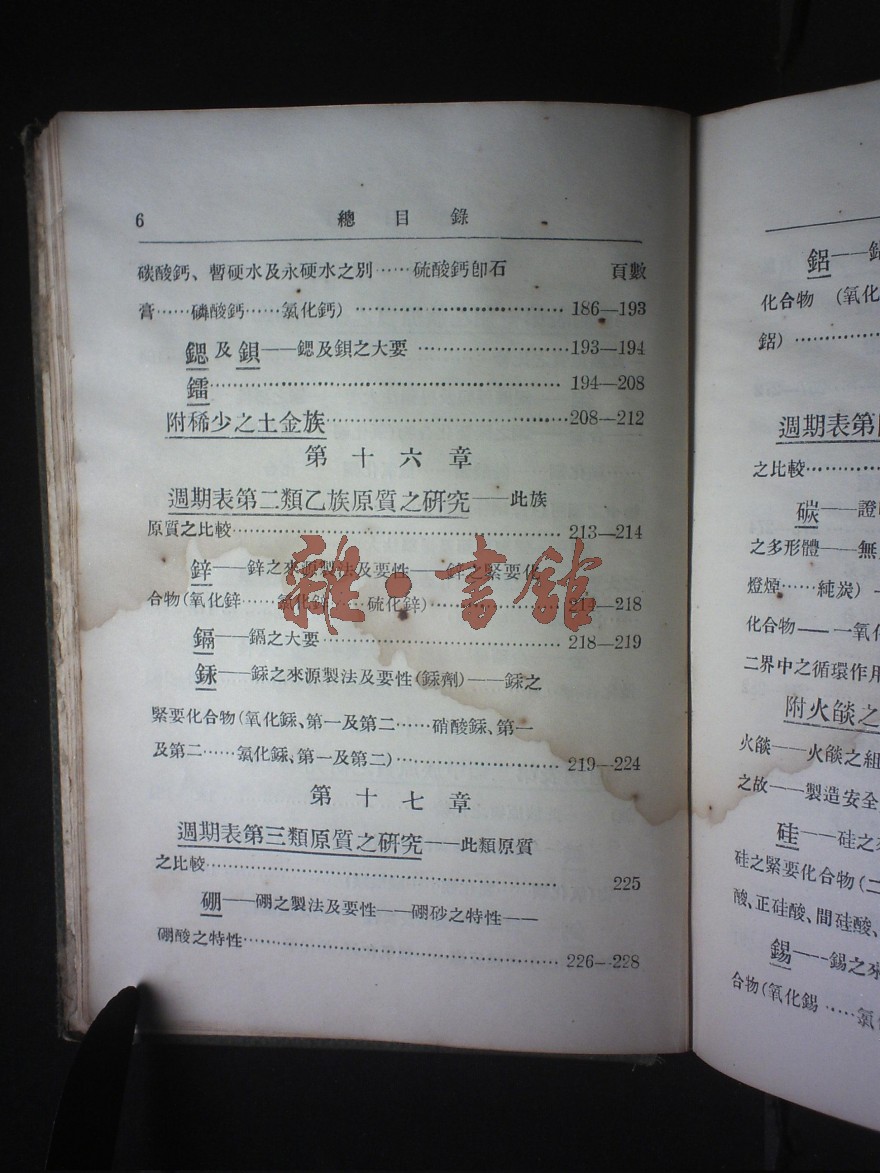 6 總目錄
碳酸鈣、暫硬水及永硬水之別……硫酸鈣卽石 頁數
膏……磷酸鈣……氯化鈣)……186—193
鍶及鋇——鍶及鋇之大要……193—194
鐳……194—208
附稀少之土金族……208—212
第十六章
週期表第二類乙族原質之硏究——此族
原質之比較……213—214
鋅——鋅之來源製法及要性——鋅之緊要化
合物(氧化鋅……氯化鋅……硫化鋅)……214—218
鎘——鎘之大要……218—219
銾——銾之來源製法及要性(銾劑)——銾之
緊要化合物(氧化銾、第一及第二……硝酸銾、第一
及第二……氯化銾、第一及第二)……219—224
第十七章
週期表第三類原質之硏究——此類原質
之比較……225
硼——硼之製法及要性——硼砂之特性——
硼酸之特性……226—228
雜·書館
鋁——鋁
化合物(氧化
鋁)……
週期表第
之比較……
碳——證
之多形體——無
燈煙……純炭)
化合物——一氧化
二界中之循環作用
附火燄
火燄——火燄之組
之故——製造安全
硅——硅之來
硅之緊要化合物(二
酸、正硅酸、間硅酸、
錫——錫之來
合物(氧化錫……氯化